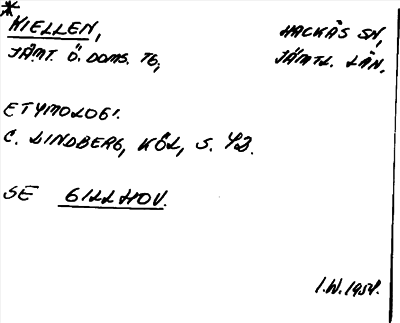 *
KIELLEN, HACKÅS SN,
JÄMT. Ö. DOMS. TG, JÄMTL. LÄN.
ETYMOLOGI.
C. LINDBERG, KÖL, S. 42.
SE GILLHOV.
I.W. 1954.